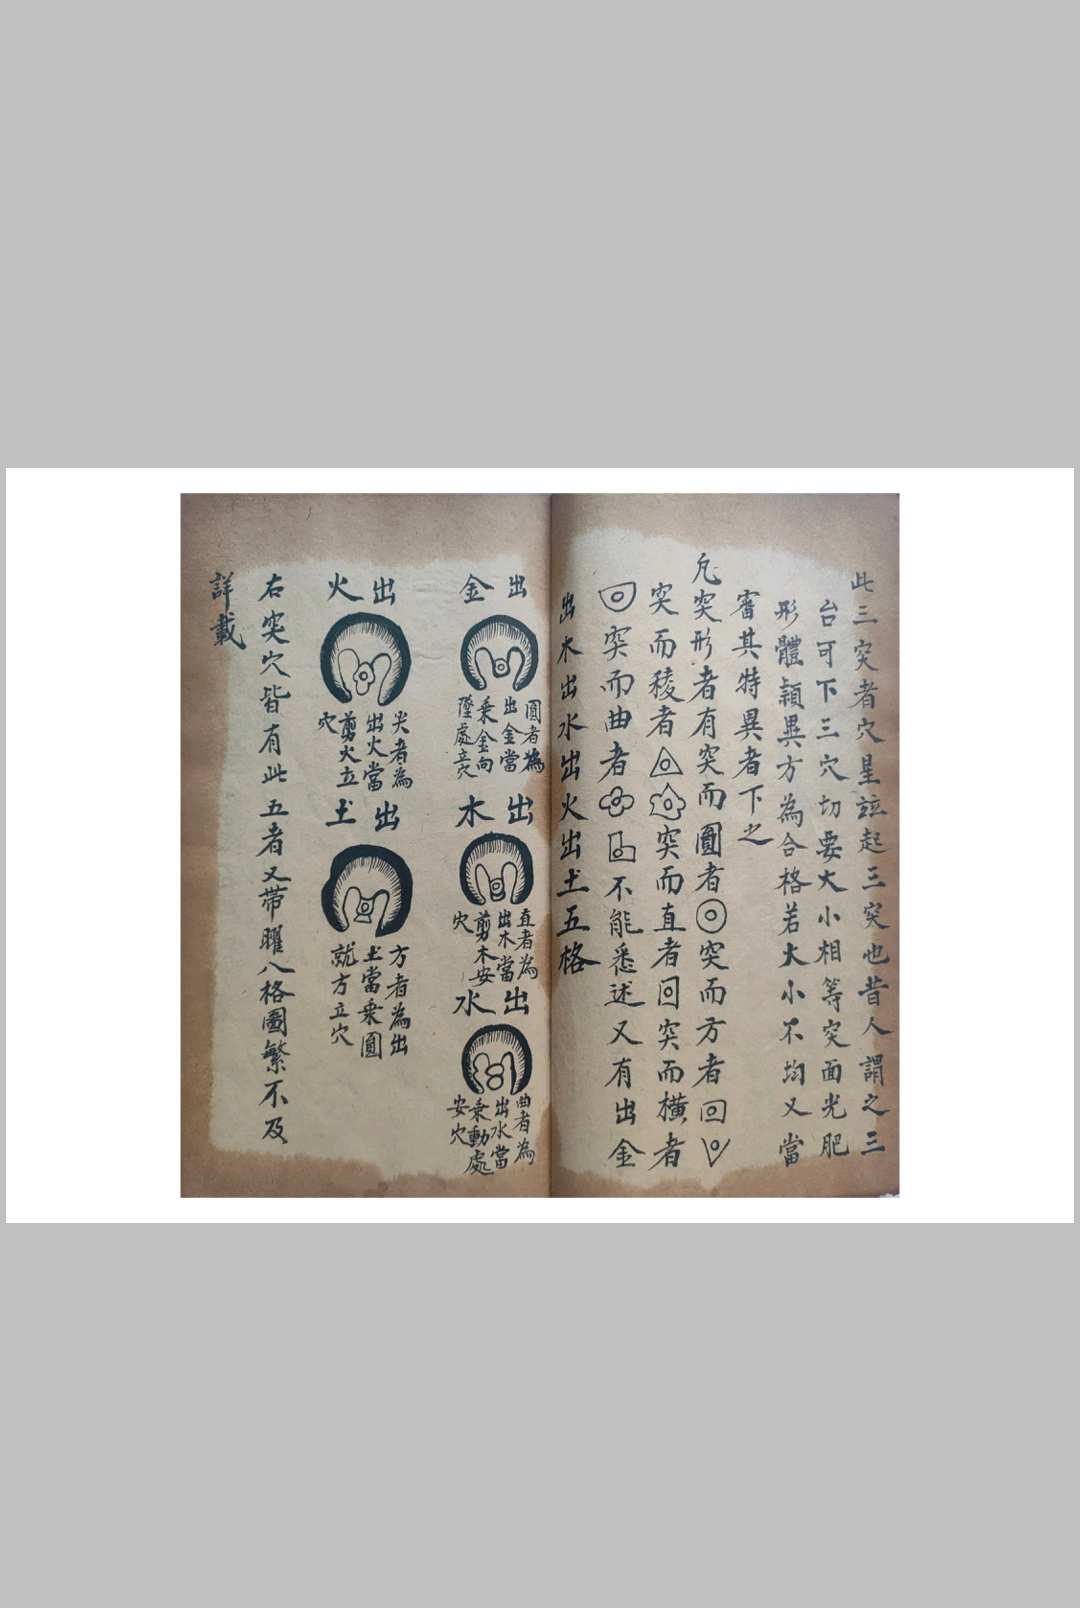 此三突者穴星竝起三突也昔人謂之三
台可下三穴切要大小相等突面光肥
形體頴異方為合格若大小不均又當
審其特異者下之
凡突形者有突而圓者突而方者
突而稜者突而直者突而橫者
突而曲者不能悉述又有出金
出木出水出火出土五格
出金
圓者為
出金當
乗金向
出木
直者為
出木當
剪木安
穴
出水
曲者為
出水當
乗動處
安穴
出火
尖者為
出火當
剪火立
穴
出土
方者為出
土當乗圓
就方立穴
右突穴皆有此五者又带曜八格圖繁不及
詳載